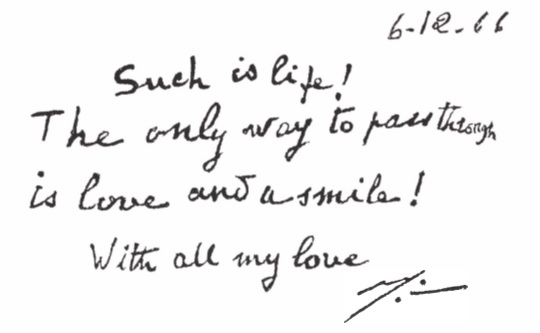 6-12-66
Such is life!
The only way to pass through
is love and a smile!
With all my love